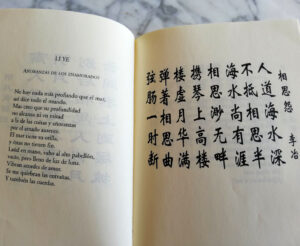 LI YE
AÑORANZAS DE LOS ENAMORADOS
No hay nada más profundo que el mar,
así dice todo el mundo.
Mas creed que su profundidad
no alcanza ni en mitad
a la de las cuitas y ansiedades
por el amado ausente.
El mar tiene orilla,
y éstas no tienen fin.
Laúd en mano, subo al alto pabellón,
vacío, pero lleno de luz de luna.
Vibran acordes de amor.
Se me quiebran las entrañas.
Y también las cuerdas.
相思怨
李冶
人道海水深
不抵相思半
海水尚有涯
相思渺無畔
携琴上高樓
樓虛月華滿
彈著相思曲
弦腸一时断